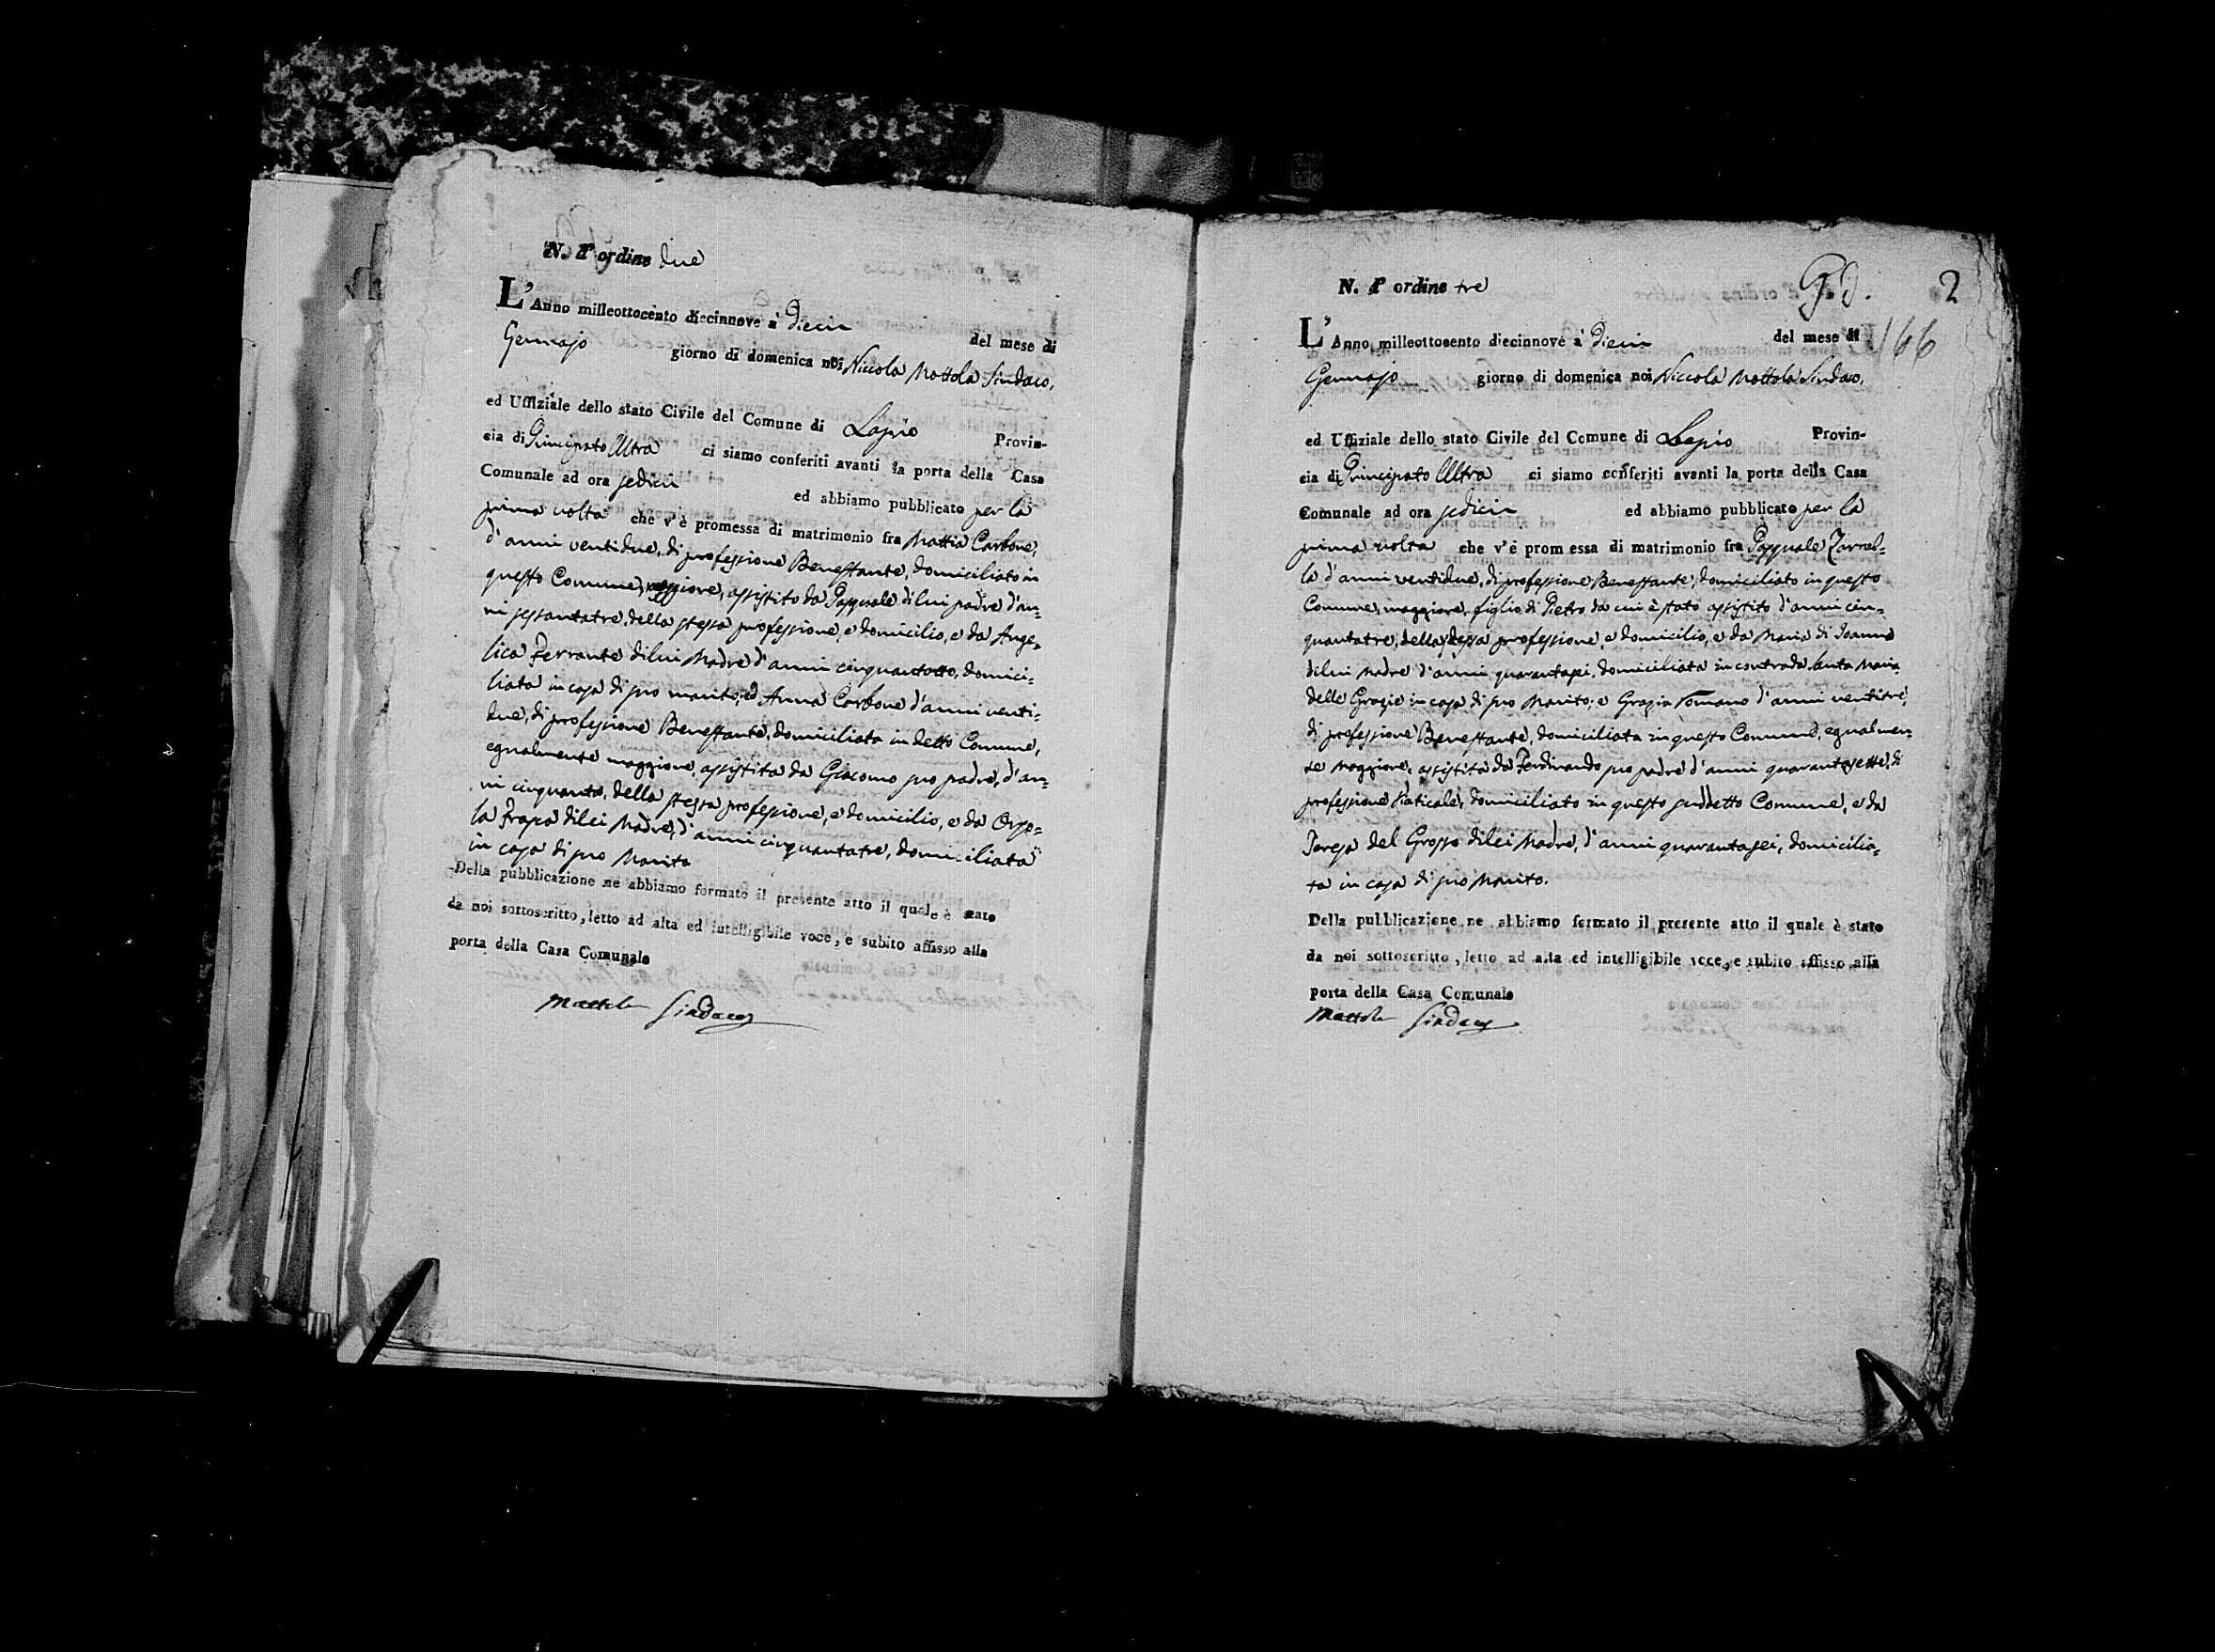 N. d'ordine due
L'Anno milleottocento diecinnove à Dieci del mese di
Gennajo giorno di domenica noi Niccola Mottola Sindaco,
ed Uffiziale dello stato Civile del Comune di Lapio Provin-
cia di Principato Ultra ci siamo conferiti avanti la porta della Casa
Comunale ad ora sedici ed abbiamo pubblicato per la
prima volta che v'è promessa di matrimonio fra Mattia Carbone,
d'anni ventidue, di professione Benestante, domiciliato in
questo Comune, maggiore, assistito da Pasquale di lui padre d'an=
ni sessantatre, della stessa professione, e domicilio, e da Ange=
lica Ferrante di lui Madre d'anni cinquantotto, domici=
liata in casa di suo marito; ed Anna Carbone d'anni venti=
due, di professione Benestante, domiciliata in detto Comune,
egualmente maggiore, assistita da Giacomo suo padre, d'an=
ni cinquanta, della stessa professione, e domicilio, e da Orso=
la Frapa di lei Madre, d'anni cinquantatre, domiciliata
in casa di suo Marito
Della pubblicazione ne abbiamo formato il presente atto il quale è stato
da noi sottoscritto, letto ad alta ed intelligibile voce, e subito affisso alla
porta della Casa Comunale
Mottola Sindaco
2
166
N. d'ordine tre
L'Anno milleottocento diecinnove à Dieci del mese di
Gennajo giorno di domenica noi Niccola Mottola Sindaco,
ed Uffiziale dello stato Civile del Comune di Lapio Provin-
cia di Principato Ultra ci siamo conferiti avanti la porta della Casa
Comunale ad ora sedici ed abbiamo pubblicato per la
prima volta che v'è promessa di matrimonio fra Pasquale Zarrel=
la d'anni ventidue, di professione Benestante, domiciliato in questo
Comune, maggiore, figlio di Pietro da cui è stato assistito d'anni cin=
quantatre, della stessa professione, e domicilio, e da Maria di Joanno
di lui Madre d'anni quarantasei, domiciliata in contrada Santa Maria
delle Grazie in casa di suo Marito; e Grazia Romano d'anni ventitre,
di professione Benestante, domiciliata in questo Comune, egualmen=
te Maggiore, assistita da Ferdinando suo padre d'anni quarantasette, di
professione Vaticale, domiciliato in questo suddetto Comune, e da
Teresa del Grosso di lei Madre, d'anni quarantasei, domicilia=
ta in casa di suo Marito.
Della pubblicazione ne abbiamo formato il presente atto il quale è stato
da noi sottoscritto, letto ad alta ed intelligibile voce, e subito affisso alla
porta della Casa Comunale
Mottola Sindaco